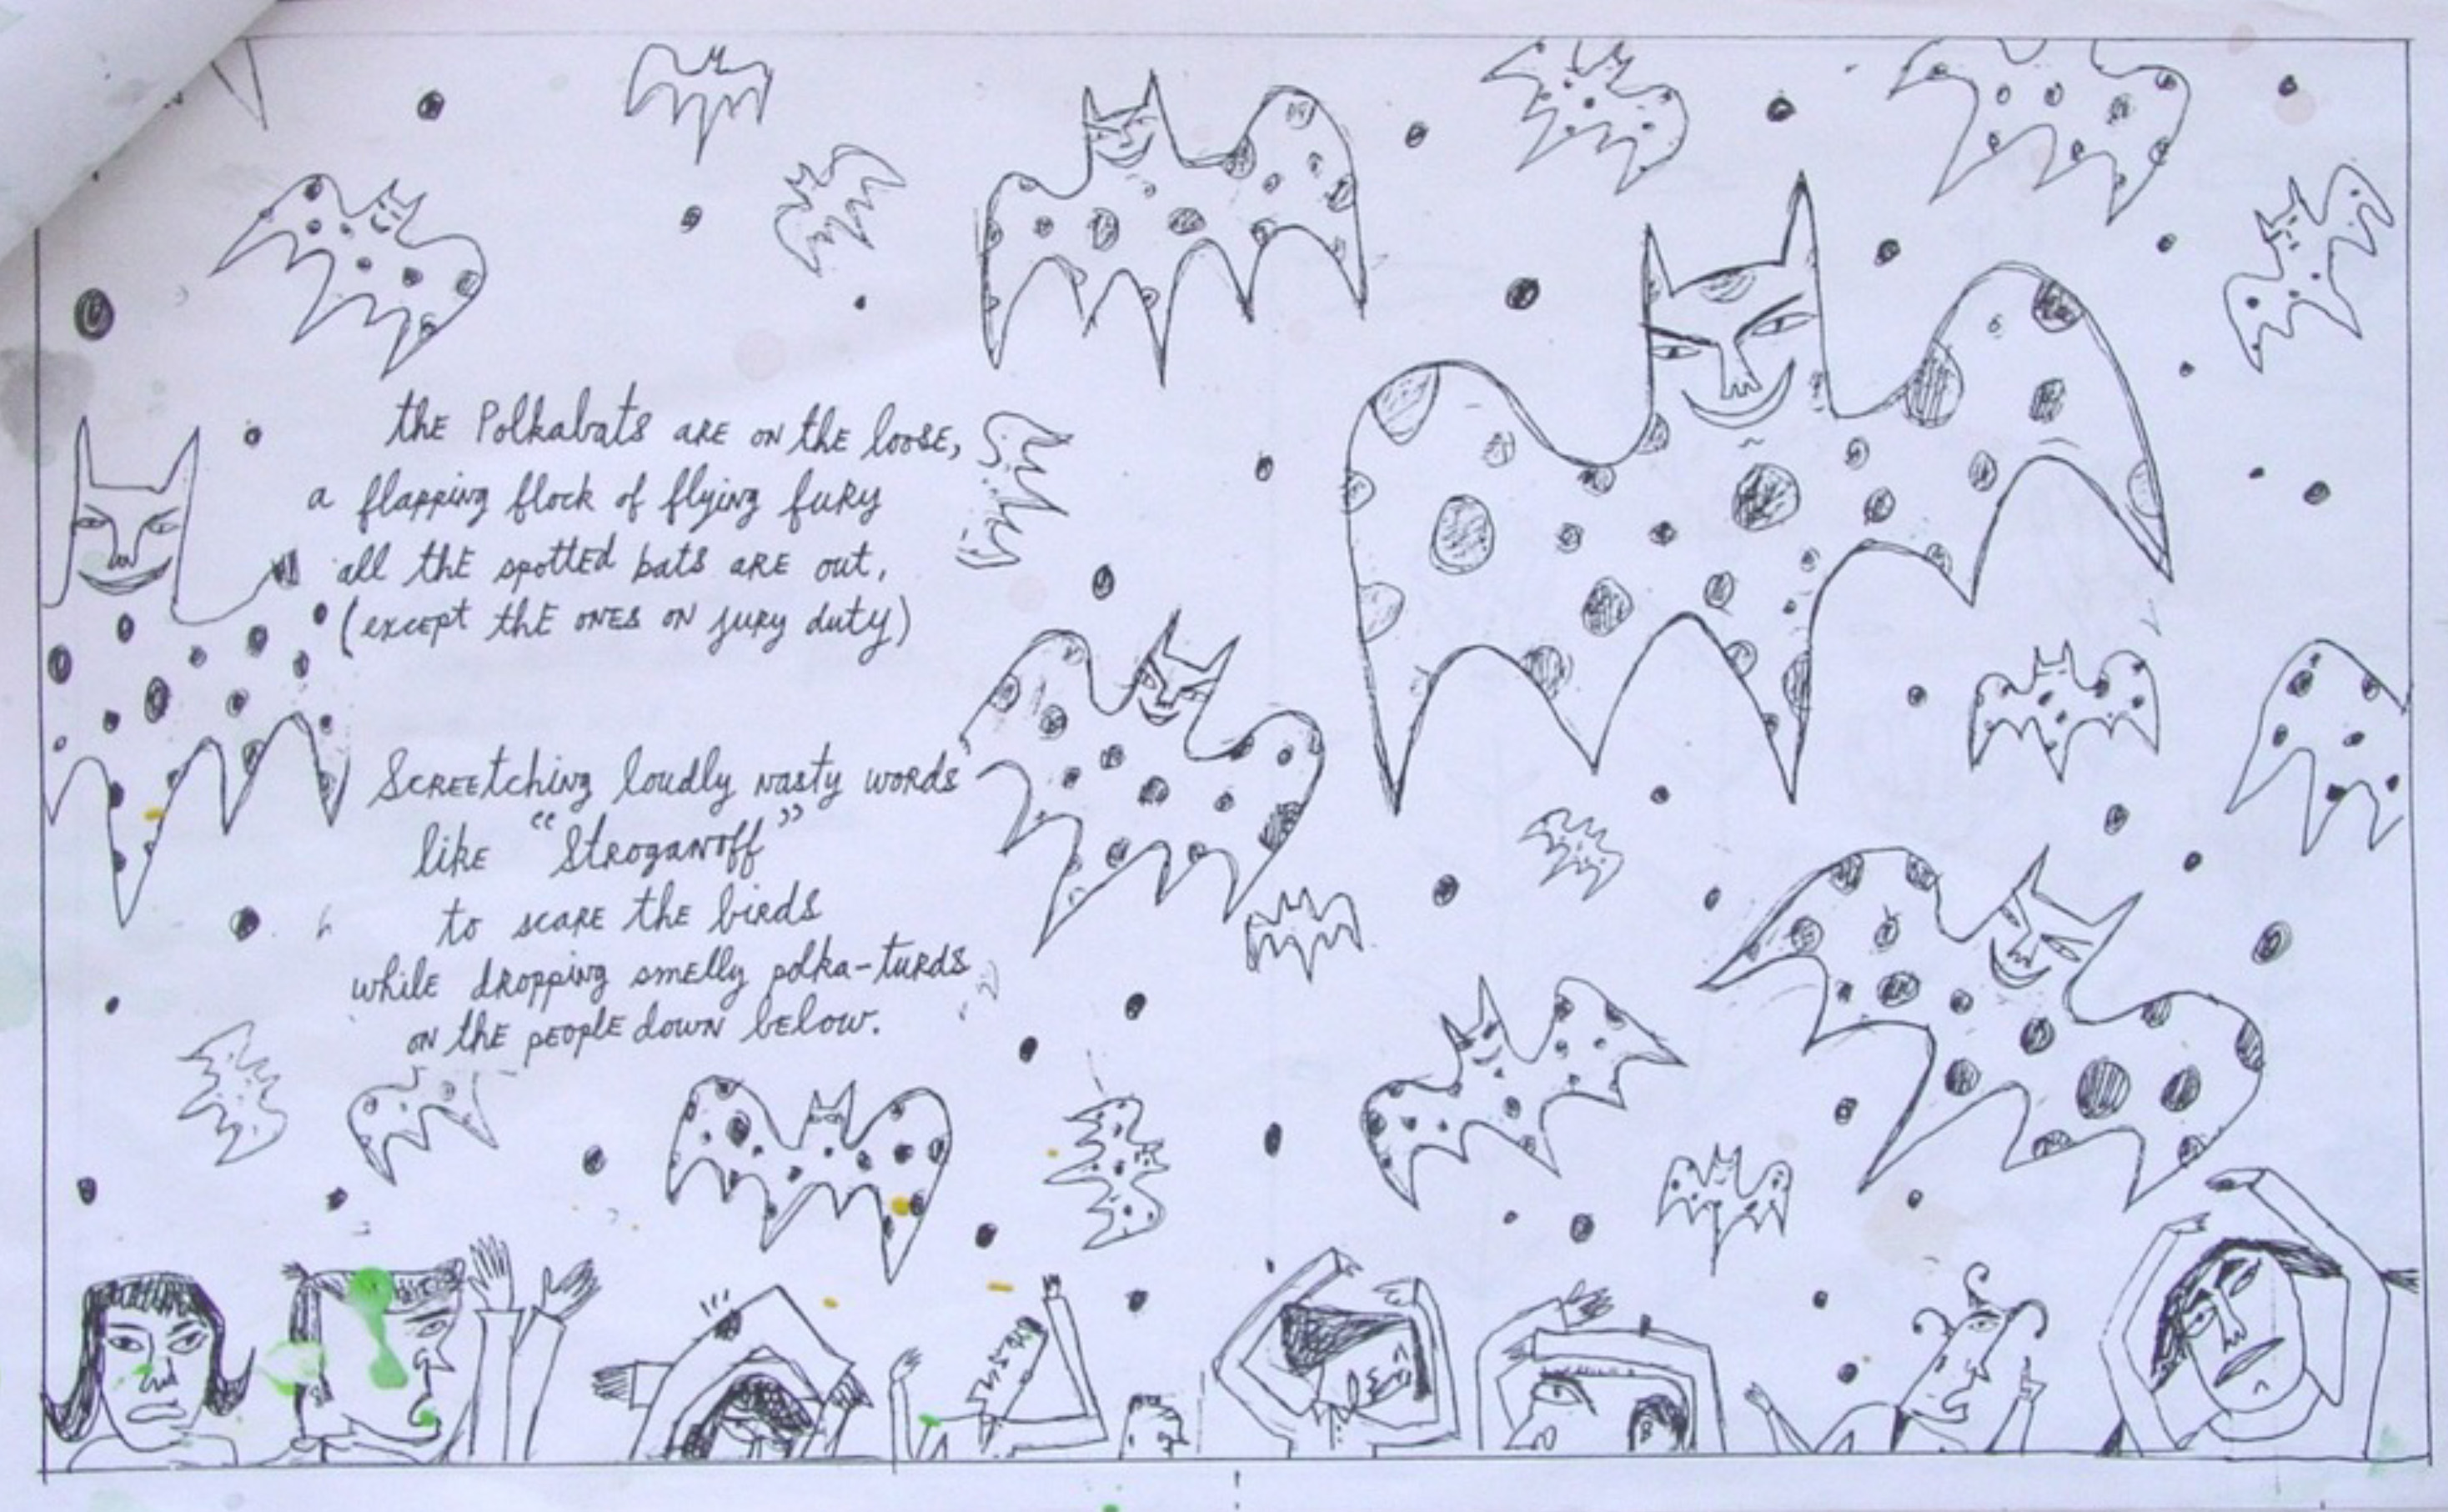 the Polkabats are on the loose,
a flapping flock of flying fury
all the spotted bats are out,
(except the ones on jury duty)
Screetching loudly nasty words
like "Stroganoff"
to scare the birds
while dropping smelly polka-turds
on the people down below.